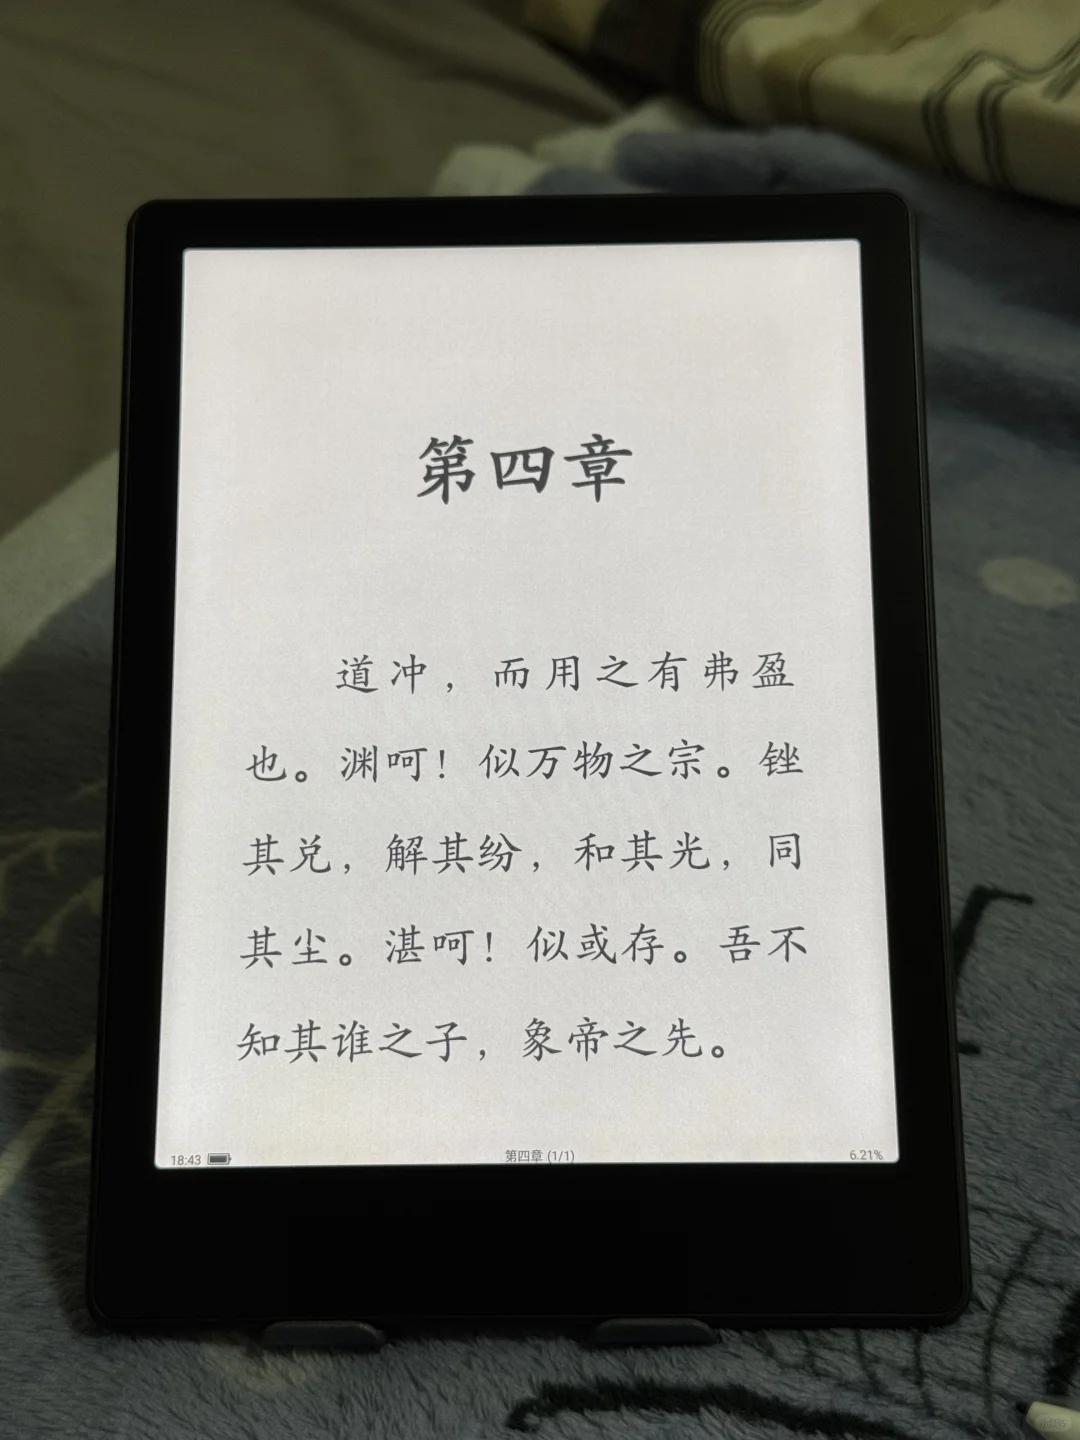 第四章
道冲，而用之有弗盈
也。渊呵！似万物之宗。锉
其兑，解其纷，和其光，同
其尘。湛呵！似或存。吾不
知其谁之子，象帝之先。
18:43 第四章 (1/1) 6.21%